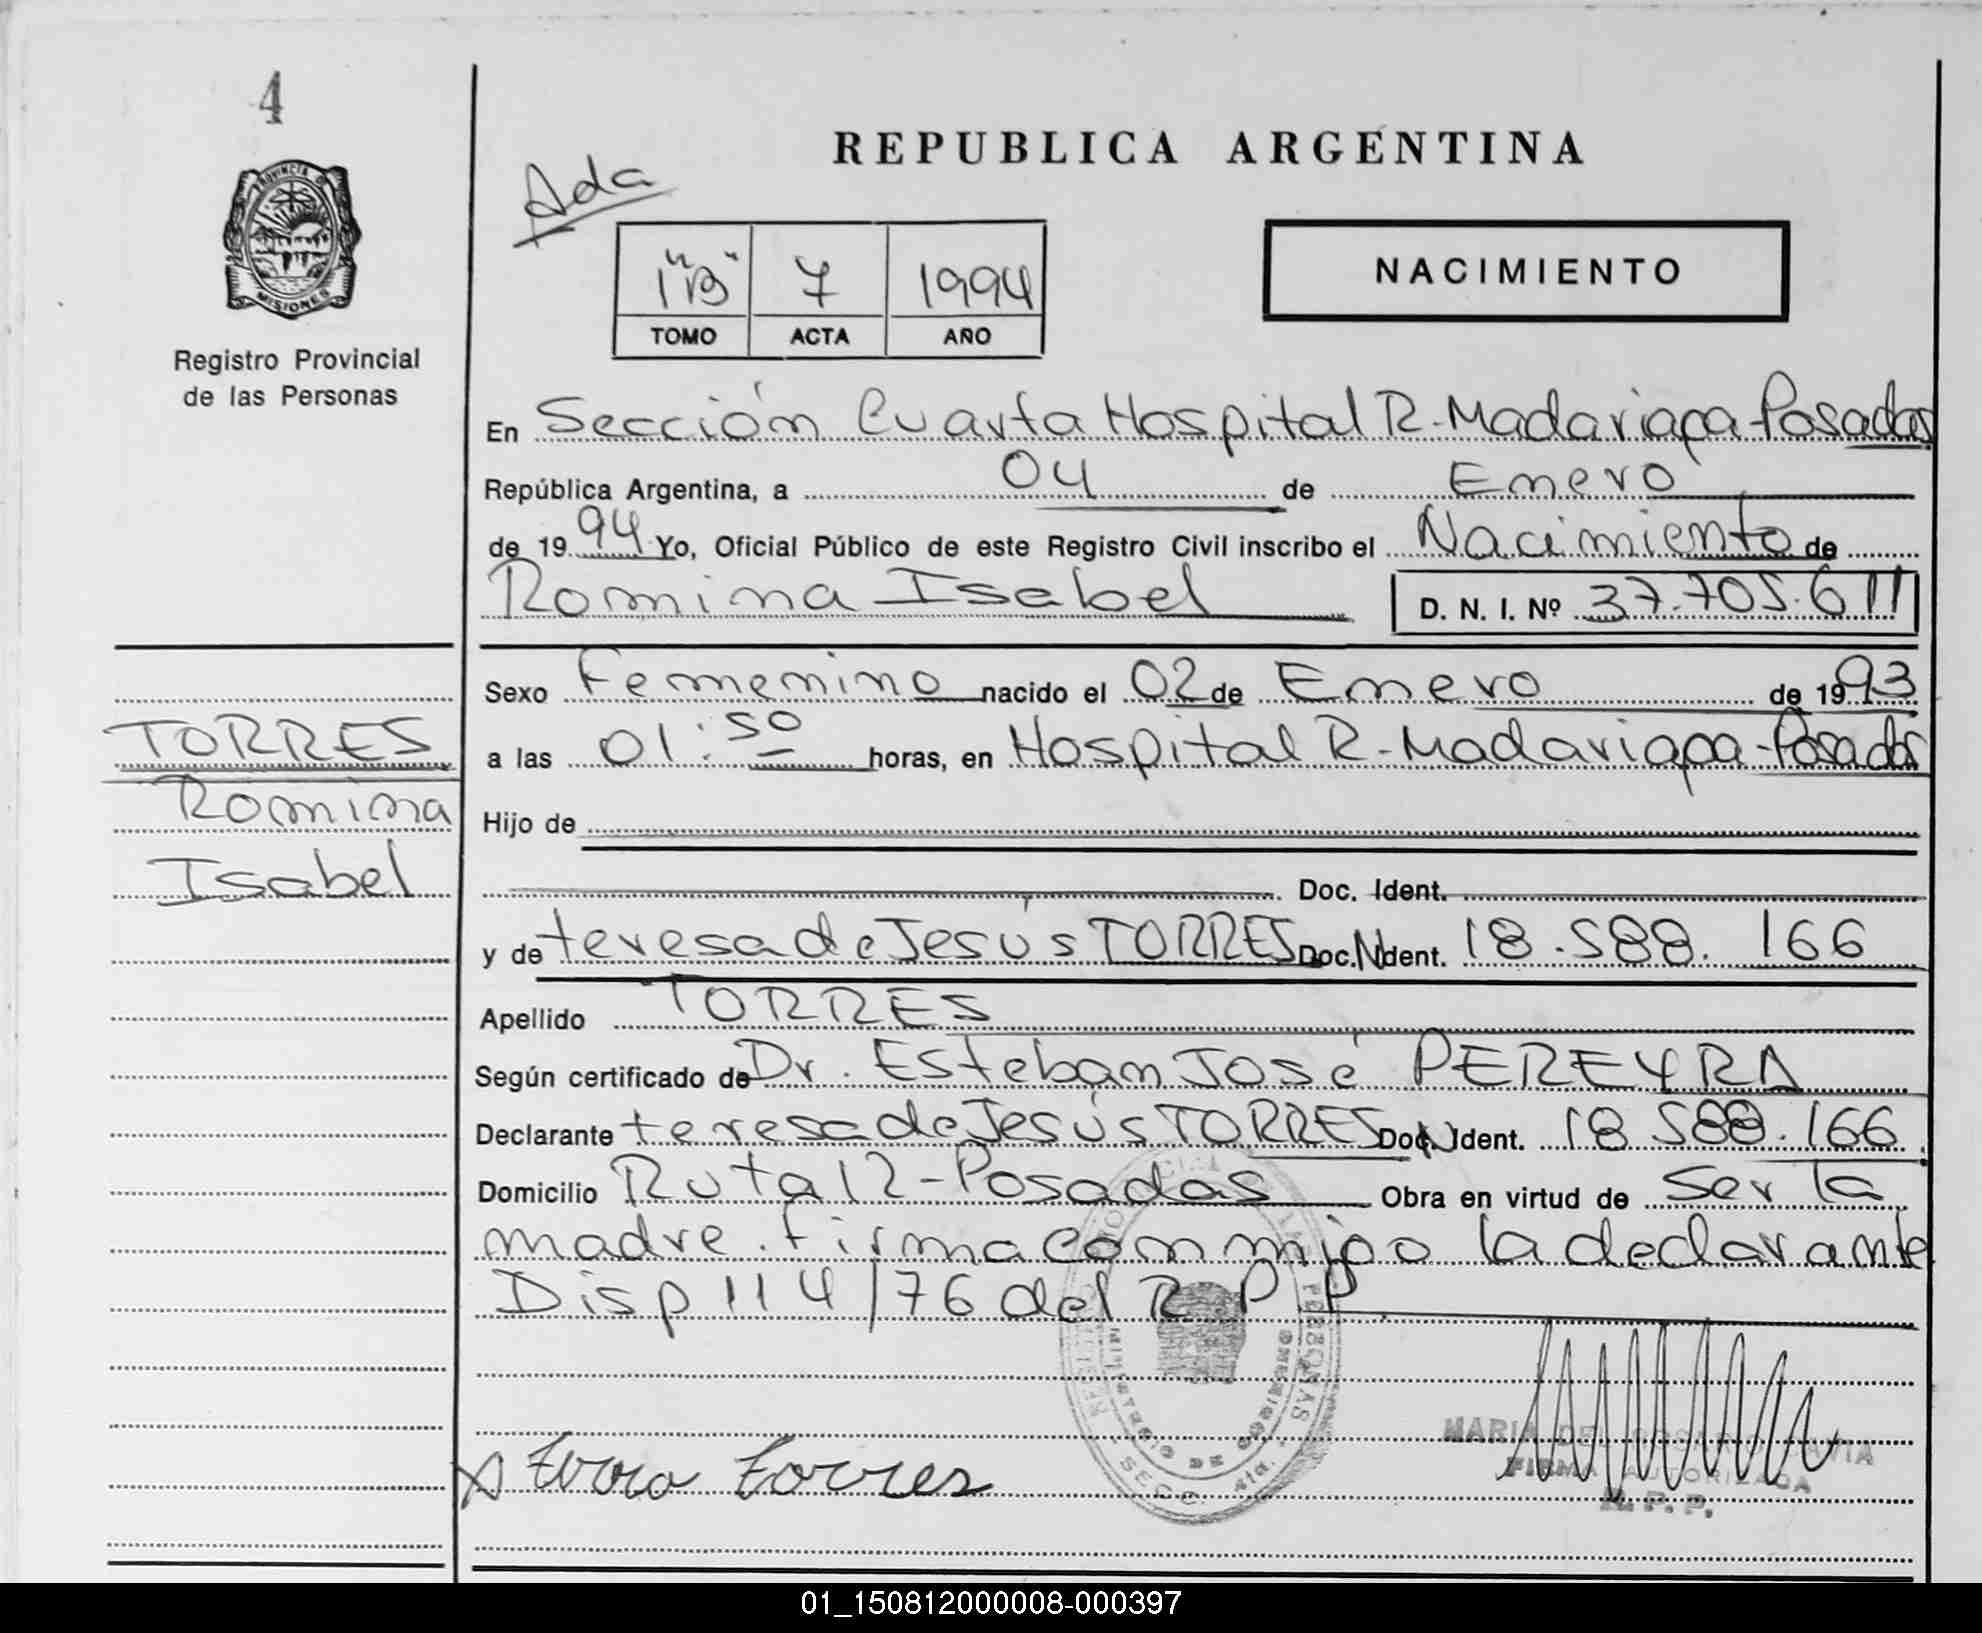 4
REPUBLICA ARGENTINA
Ada
PROVINCIA DE MISIONES
1 "B" 7 1994
TOMO ACTA AÑO
NACIMIENTO
Registro Provincial
de las Personas
En Sección Cuarta Hospital R. Madariaga - Posadas
República Argentina, a 04 de Enero
de 19 94 Yo, Oficial Público de este Registro Civil inscribo el Nacimiento de
Romina Isabel D. N. I. Nº 37.705.611
Sexo Femenino nacido el 02 de Enero de 19 93
TORRES
Romina
Isabel
a las 01:50 horas, en Hospital R. Madariaga - Posadas
Hijo de
Doc. Ident.
y de teresa de Jesús TORRES Doc. N Ident. 18.588.166
Apellido TORRES
Según certificado de Dr. Esteban José PEREYRA
Declarante teresa de Jesús TORRES Doc. N Ident. 18.588.166
Domicilio Ruta 12 - Posadas Obra en virtud de Ser la
madre. firma conmigo la declarante
Disp 114/76 del R P P.
Torres
MARIA DEL ROSARIO
FIRMA AUTORIZADA
R. P. P.
MINISTERIO DE GOBIERNO
SECC. 4ta.
01_150812000008-000397